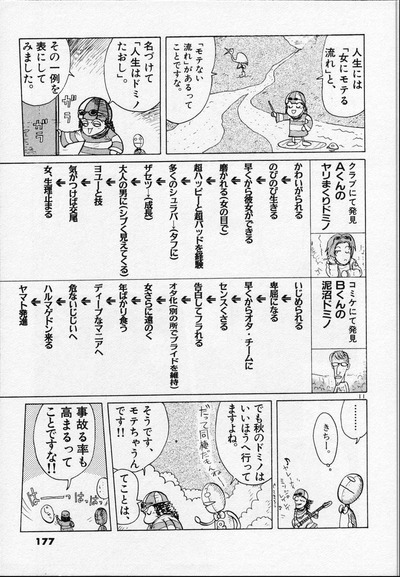 人生には
「女にモテる
流れ」と、
「モテない
流れ」があるって
ことですな。
名づけて
「人生はドミノ
たおし」。
その一例を
表にして
みました。
ガラ
クラブにて発見
Aくんの
ヤリまくりドミノ
かわいがられる
のびのび生きる
早くから彼女ができる
磨かれる(女の目で)
超ハッピーと超バッドを経験
多くのシュラバー(タフに)
ザセツー(成長)
大人の男に(シブく見えてくる)
ヨユーと技
気がつけば交尾
女、生理止まる
コミケにて発見
Bくんの
泥沼ドミノ
いじめられる
卑屈になる
早くからオタ・チームに
センスくさる
告白してフラれる
オタ化(別の所でプライドを維持)
女さらに遠のく
年ばかり食う
ディープなマニアへ
危ないじじいへ
ハルマゲドン来る
ヤマト発進
………
きちー。
でも秋のドミノは
いいほうへ行って
ますよね。
だって同棲だもん
そうです、
モテちゃうん
てことは、
です!!
事故る率も
高まるって
ことですな!!
177